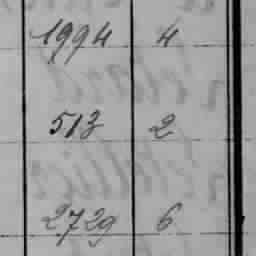 1994 4
513 2
2729 6